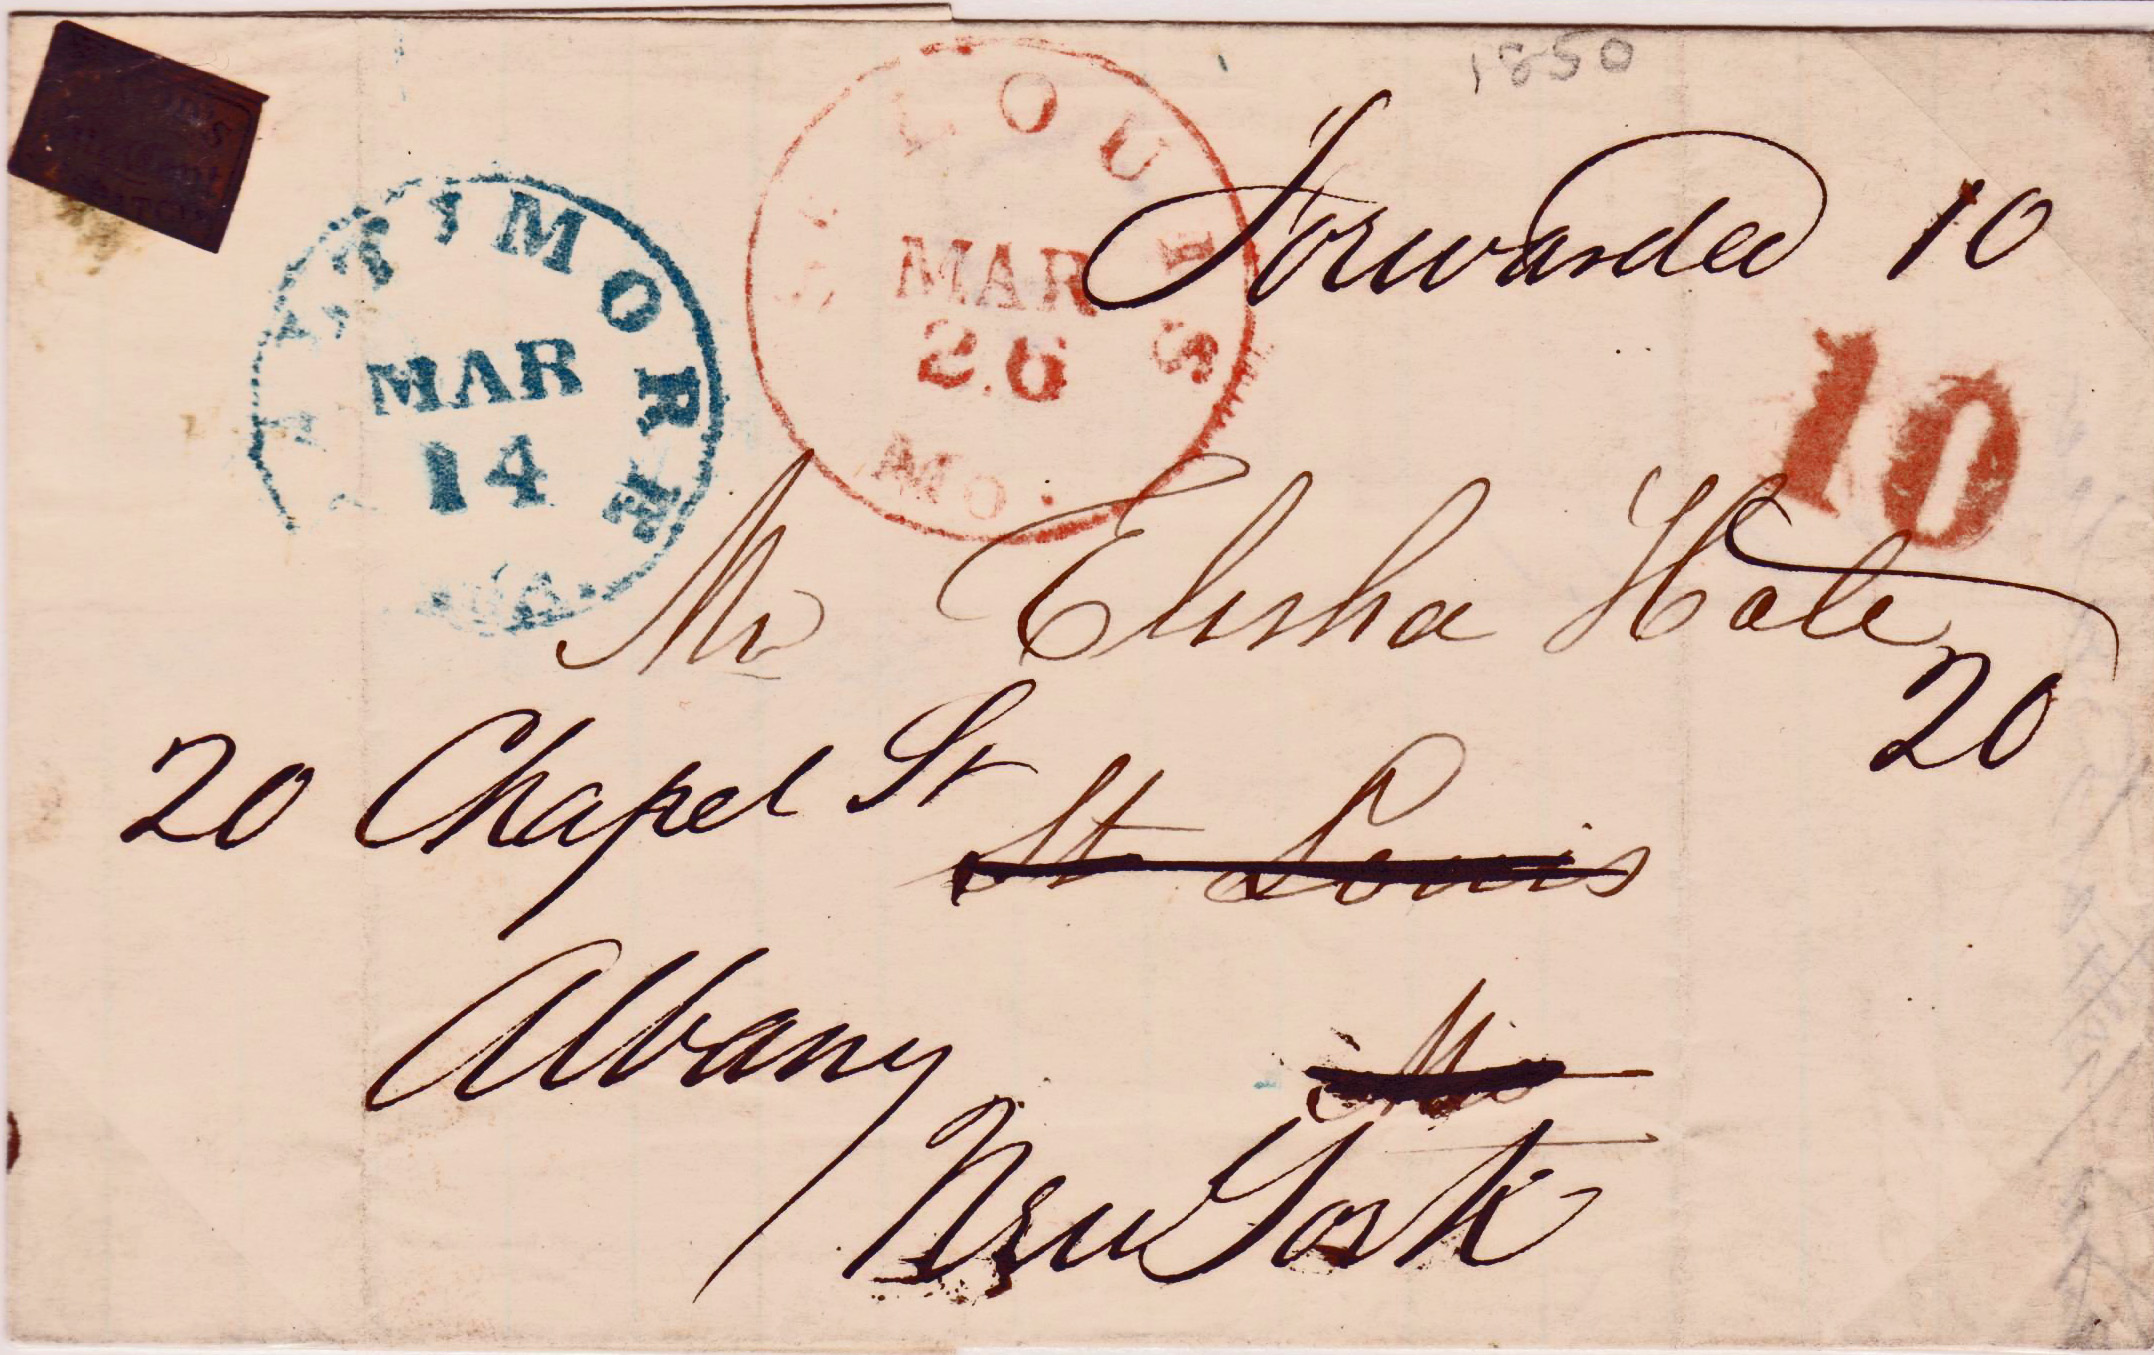 1850
ST. LOUIS
MAR
26
MO.
BALTIMORE
MAR
14
Forwarded 10
10
Mr Elisha Hale
20
20 Chapel St
St Louis
Albany
Mo
New York